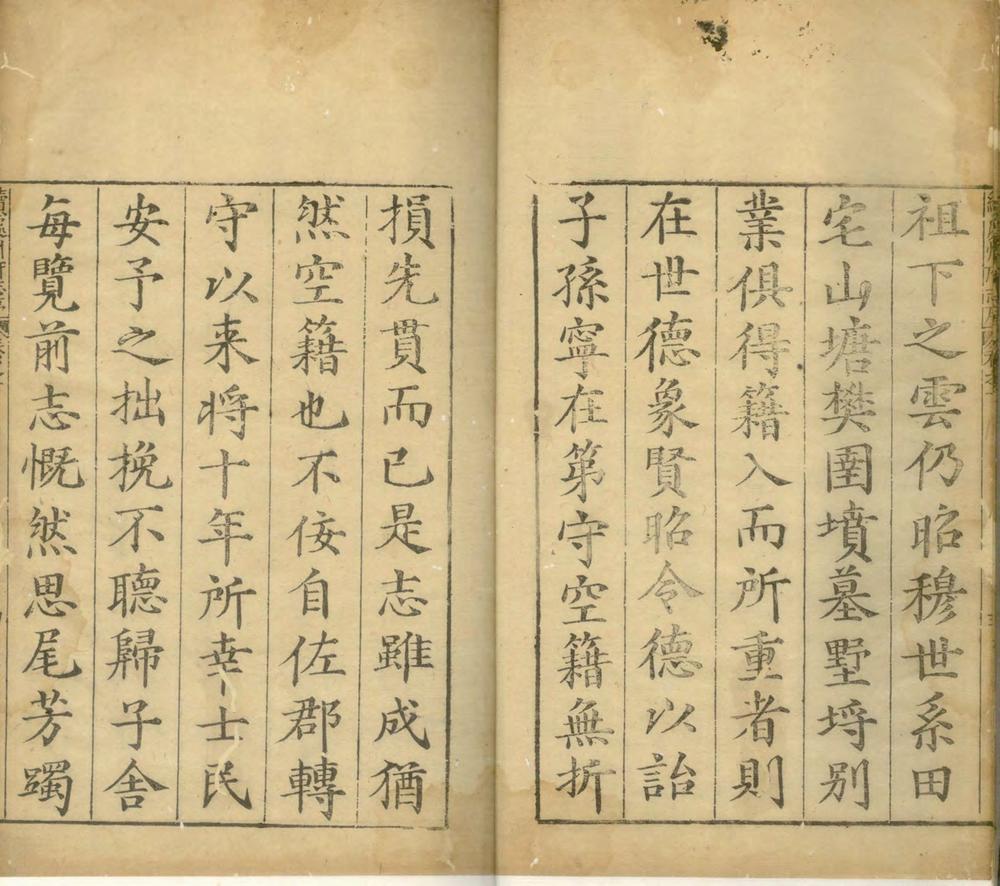 祖下之雲仍昭穆世系田
宅山塘樊圍墳墓墅埒别
業俱得籍入而所重者則
在世德象賢昭令德以詒
子孫寧在第守空籍無折
損先貫而已是志雖成猶
然空籍也不佞自佐郡轉
守以来將十年所幸士民
安予之拙挽不聽歸子舍
每覽前志慨然思尾芳躅